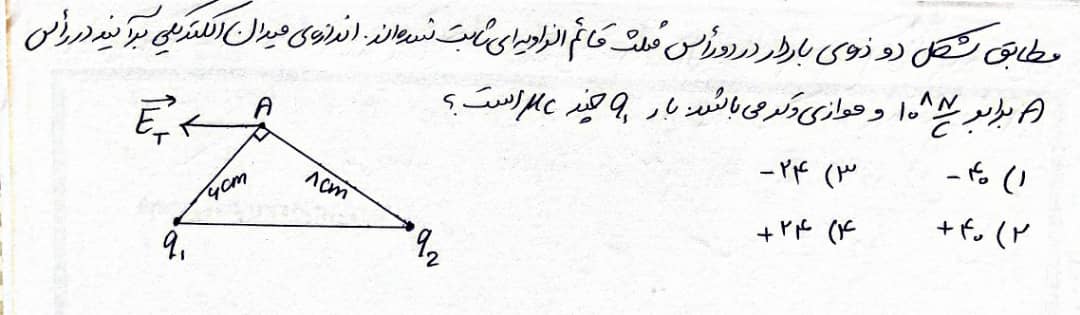 مطابق شکل دو ذره‌ی باردار در دو رأس مثلث قائم الزاویه‌ای ثابت شده‌اند. اندازه‌ی میدان الکتریکی برآیند در رأس
A برابر 10^8 N/C و موازی وتر می‌باشد. بار q₁ چند μC است؟
۱) -۴۰
۳) -۲۴
۲) +۴۰
۴) +۲۴
E_T
A
۶cm
۸cm
q₁
q₂